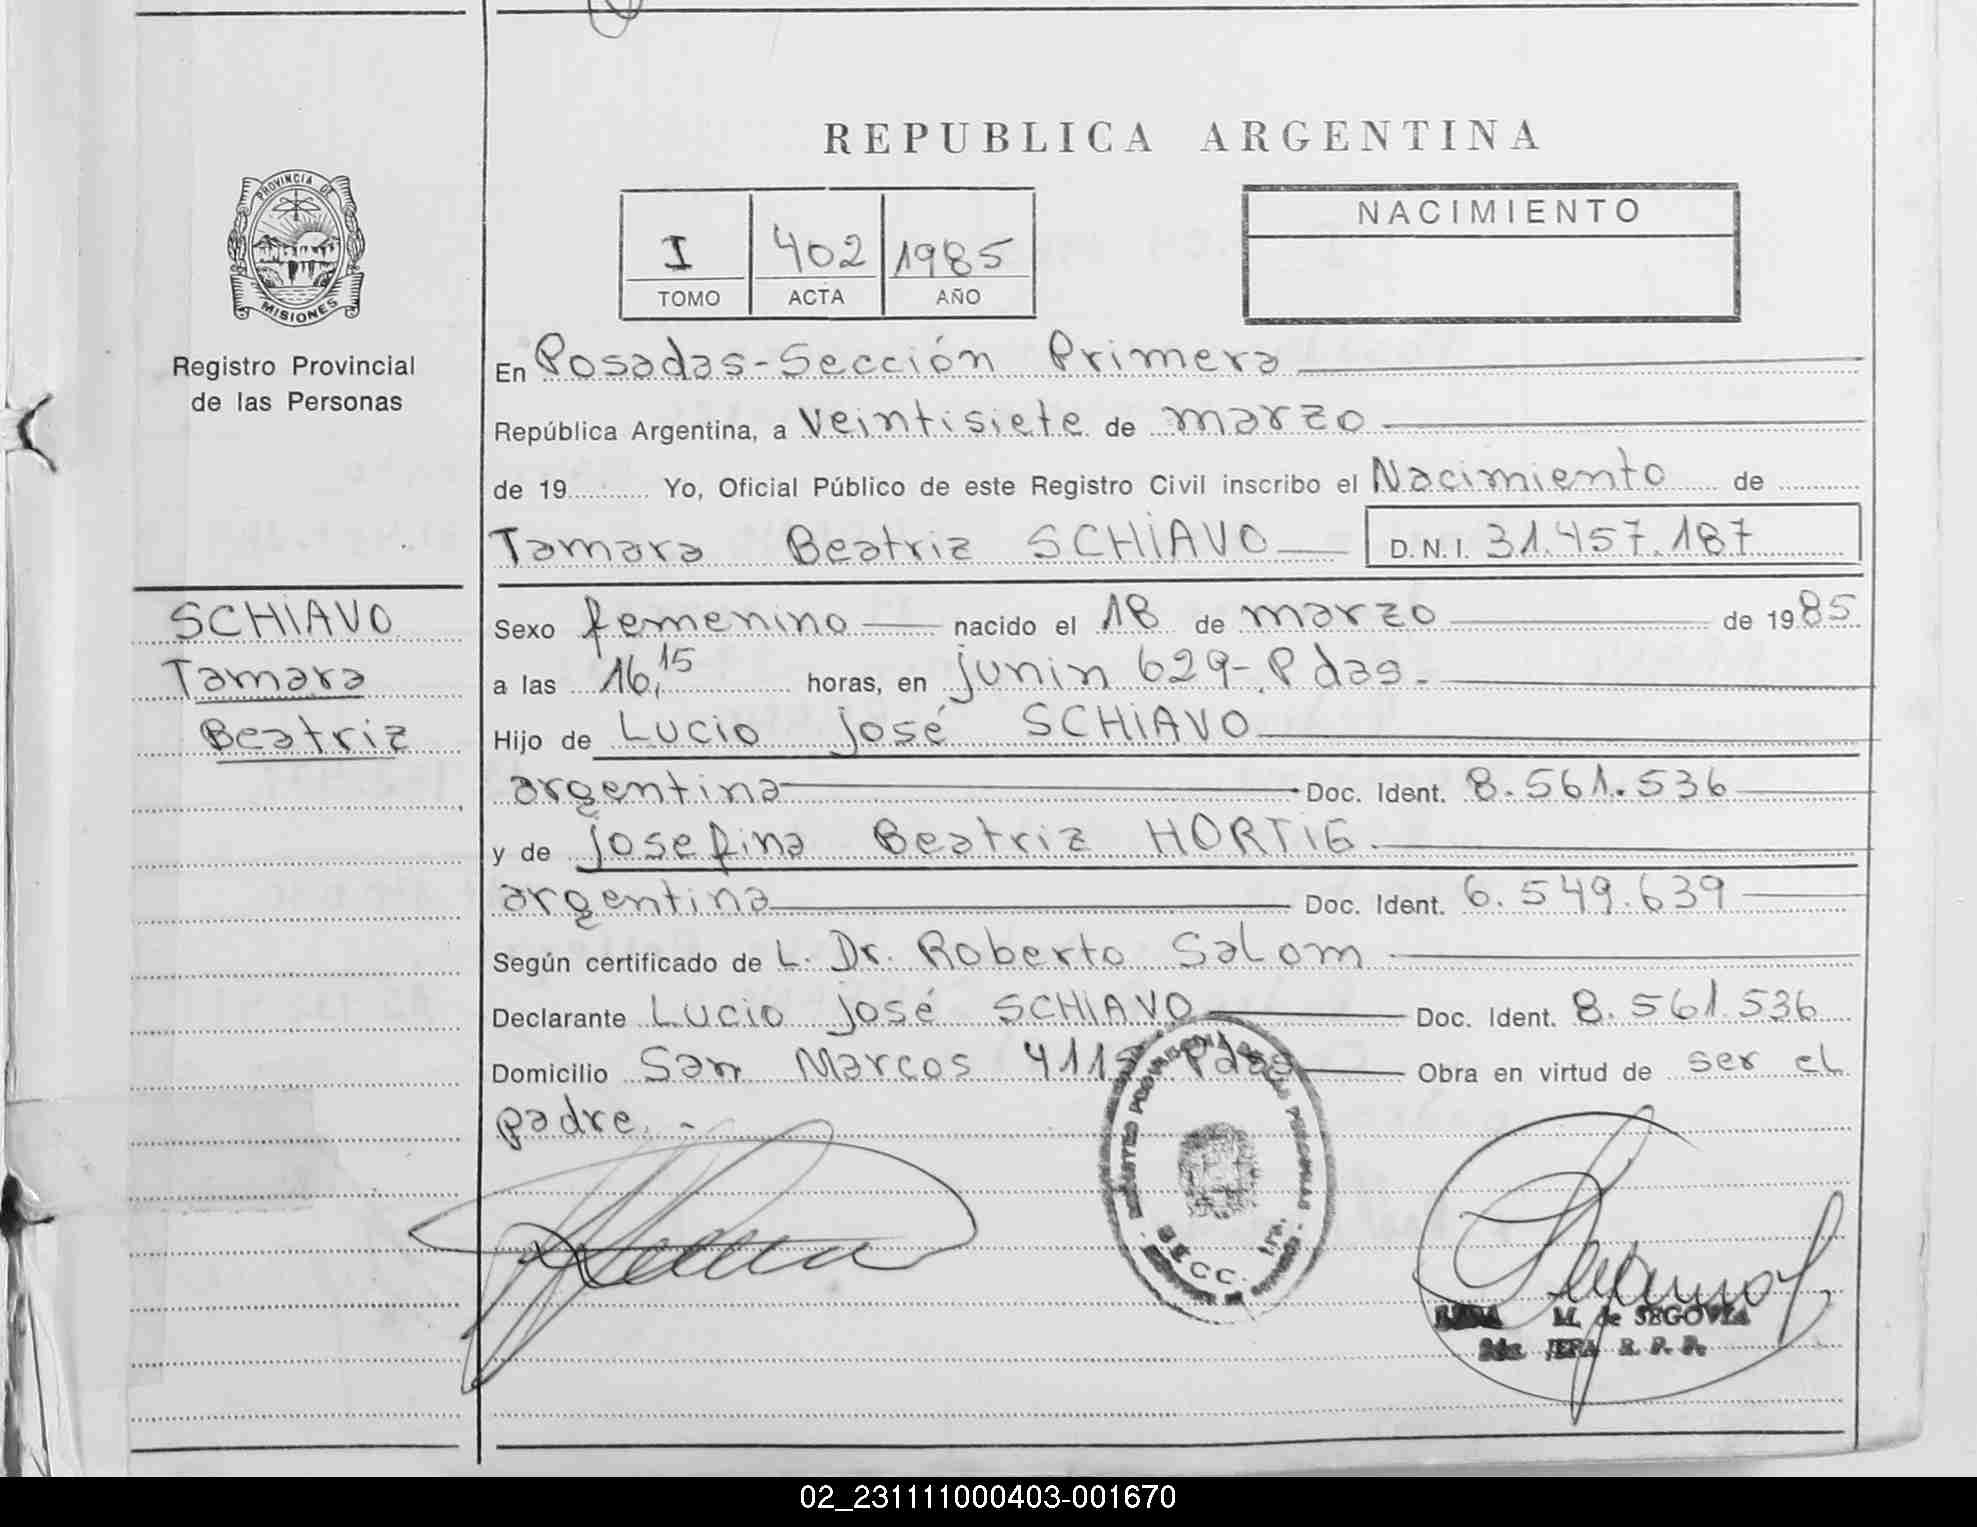 REPUBLICA ARGENTINA
PROVINCIA DE
MISIONES
Registro Provincial
de las Personas
I 402 1985
TOMO ACTA AÑO
NACIMIENTO
En Posadas-Sección Primera
República Argentina, a Veintisiete de marzo
de 19 Yo, Oficial Público de este Registro Civil inscribo el Nacimiento de
Tamara Beatriz SCHIAVO D.N.I. 31.457.187
SCHIAVO
Tamara
Beatriz
Sexo femenino nacido el 18 de marzo de 1985
a las 16,15 horas, en junin 629-Pdas.
Hijo de Lucio José SCHIAVO
argentina Doc. Ident. 8.561.536
y de Josefina Beatriz HORTIG
argentina Doc. Ident. 6.549.639
Según certificado de L. Dr. Roberto Salom
Declarante Lucio José SCHIAVO Doc. Ident. 8.561.536
Domicilio San Marcos Pdas Obra en virtud de ser el
padre.-
SECC. 1ra.
M. de SEGOVIA
JEFA R. P. P.
02_231111000403-001670